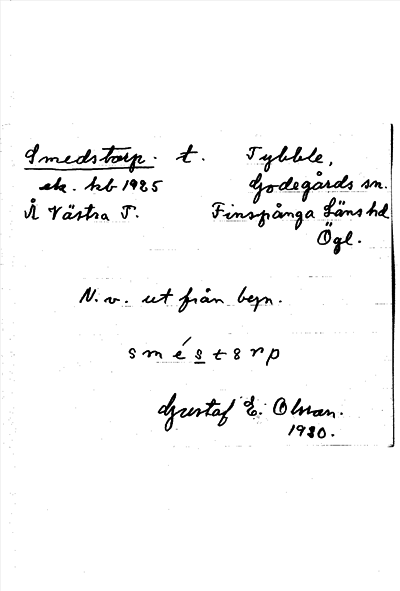 Smedstorp. t. Tybble,
ek. kb 1925 Godegårds sn.
Å Västra T. Finspånga Läns hd
Ögl.
N. v. ut från begn.
s m é s t 8 r p
Gustaf E. Olsson.
1930.